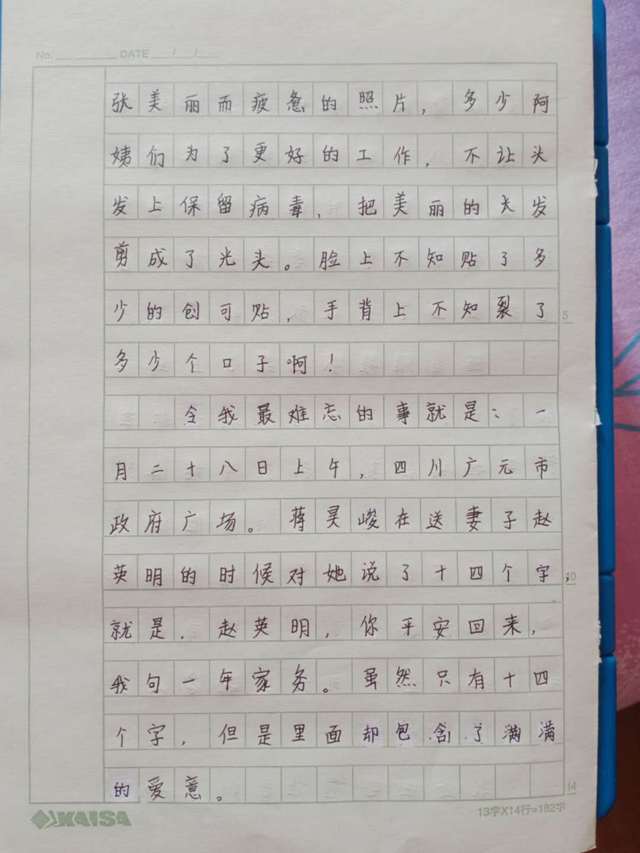 No. DATE / /
张美丽而疲惫的照片，多少阿
姨们为了更好的工作，不让头
发上保留病毒，把美丽的头发
剪成了光头。脸上不知贴了多
少的创可贴，手背上不知裂了 5
多少个口子啊！
令我最难忘的事就是：一
月二十八日上午，四川广元市
政府广场。蒋昊峻在送妻子赵
英明的时候对她说了十四个字 10
就是，赵英明，你平安回来，
我包一年家务。虽然只有十四
个字，但是里面却包含了满满
的爱意。 14
KAISA 13字X14行=182字